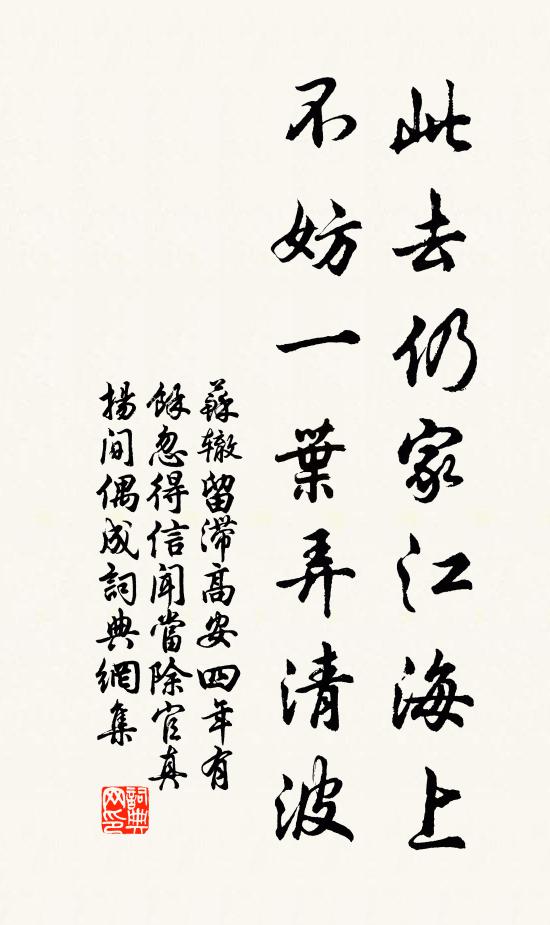 此去仍家江海上
不妨一葉弄清波
蘇辙留滯高安四年有
餘忽得信聞當除官真
揚间偶成詞典網集
詞典网印